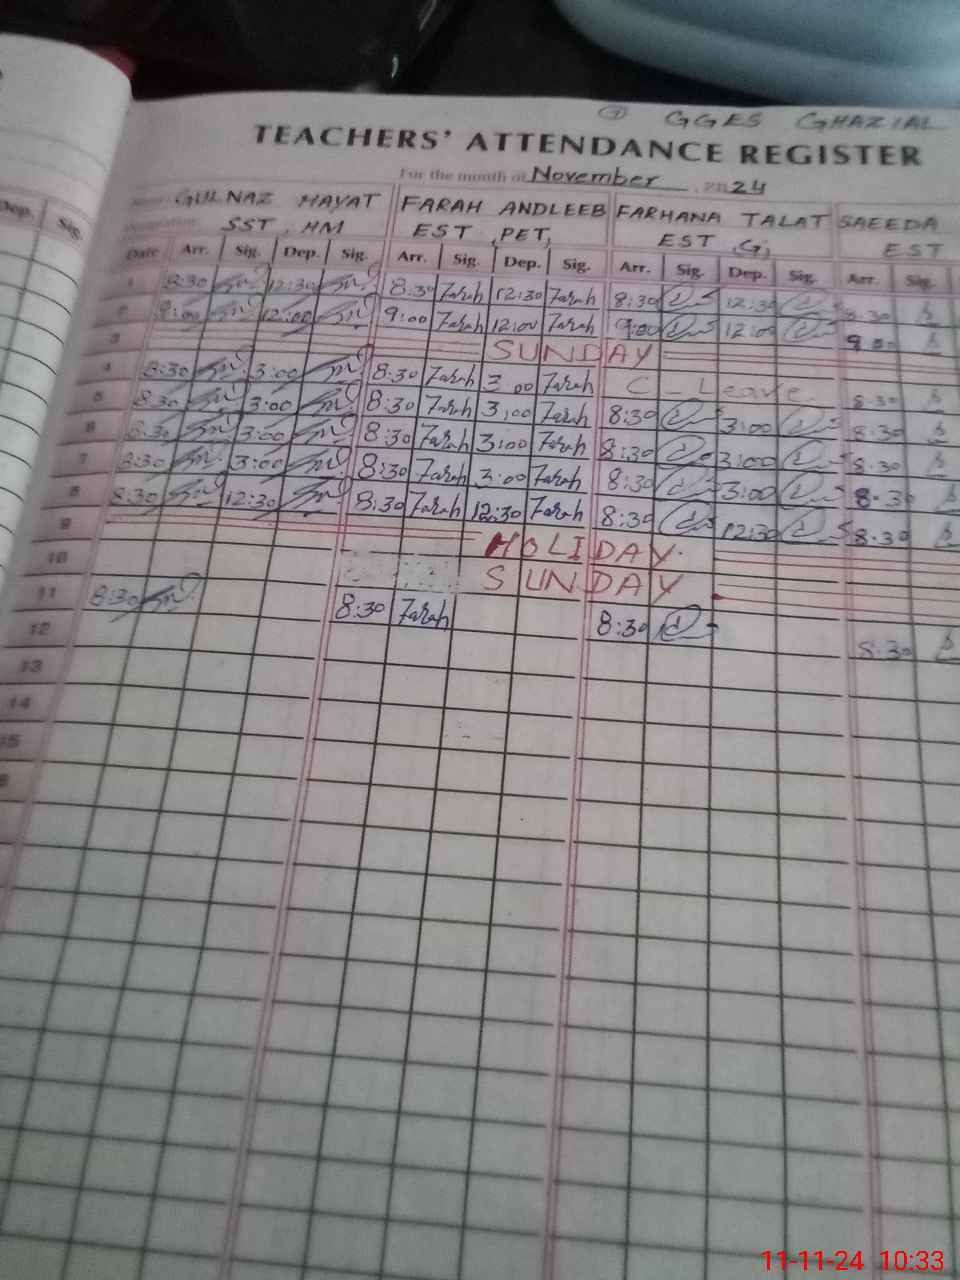 GGES GHAZIAL
TEACHERS' ATTENDANCE REGISTER
For the month of November 24
GULNAZ HAYAT FARAH ANDLEEB FARHANA TALAT SAEEDA
SST, HM EST, PET, EST (G) EST
Dep. Sig. Date Arr. Sig. Dep. Sig. Arr. Sig. Dep. Sig. Arr. Sig. Dep. Sig. Arr. Sig.
1 8:30 12:30 8:30 Farah 12:30 Farah 8:30 12:30 8:30
2 9:00 12:00 9:00 Farah 12:00 Farah 9:00 12:00 9:00
3 SUNDAY
4 8:30 3:00 8:30 Farah 3:00 Farah C-Leave 8:30
5 8:30 3:00 8:30 Farah 3:00 Farah 8:30 3:00 8:30
6 8:30 3:00 8:30 Farah 3:00 Farah 8:30 3:00 8:30
7 8:30 3:00 8:30 Farah 3:00 Farah 8:30 3:00 8:30
8 8:30 12:30 8:30 Farah 12:30 Farah 8:30 12:30 8:30
9 HOLIDAY.
10 SUNDAY
11 8:30 8:30 Farah 8:30 8:30
12
13
14
15
11-11-24 10:33